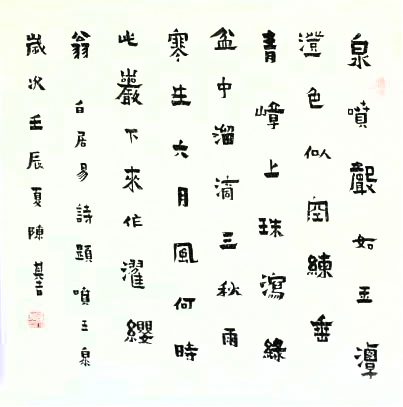 泉噴聲如玉潭
澄色似空練垂
青嶂上珠瀉綠
盆中溜滴三秋雨
寒生六月風何時
此巖下來作濯纓
翁白居易詩題噴玉泉
歲次壬辰夏陳其吉